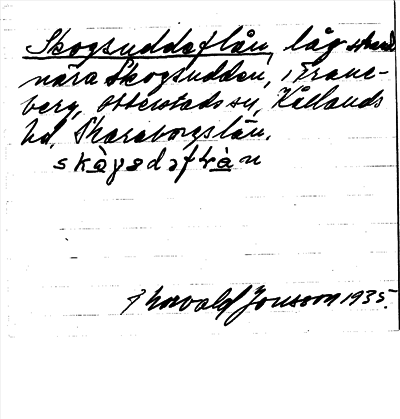 Skogsuddeflån, låg strand
nära Skogsudden, i Frane-
berg, Otterstads sn, Kållands
hd, Skaraborgslän.
skògsdəflàn
Thorvald Jonsson 1935.